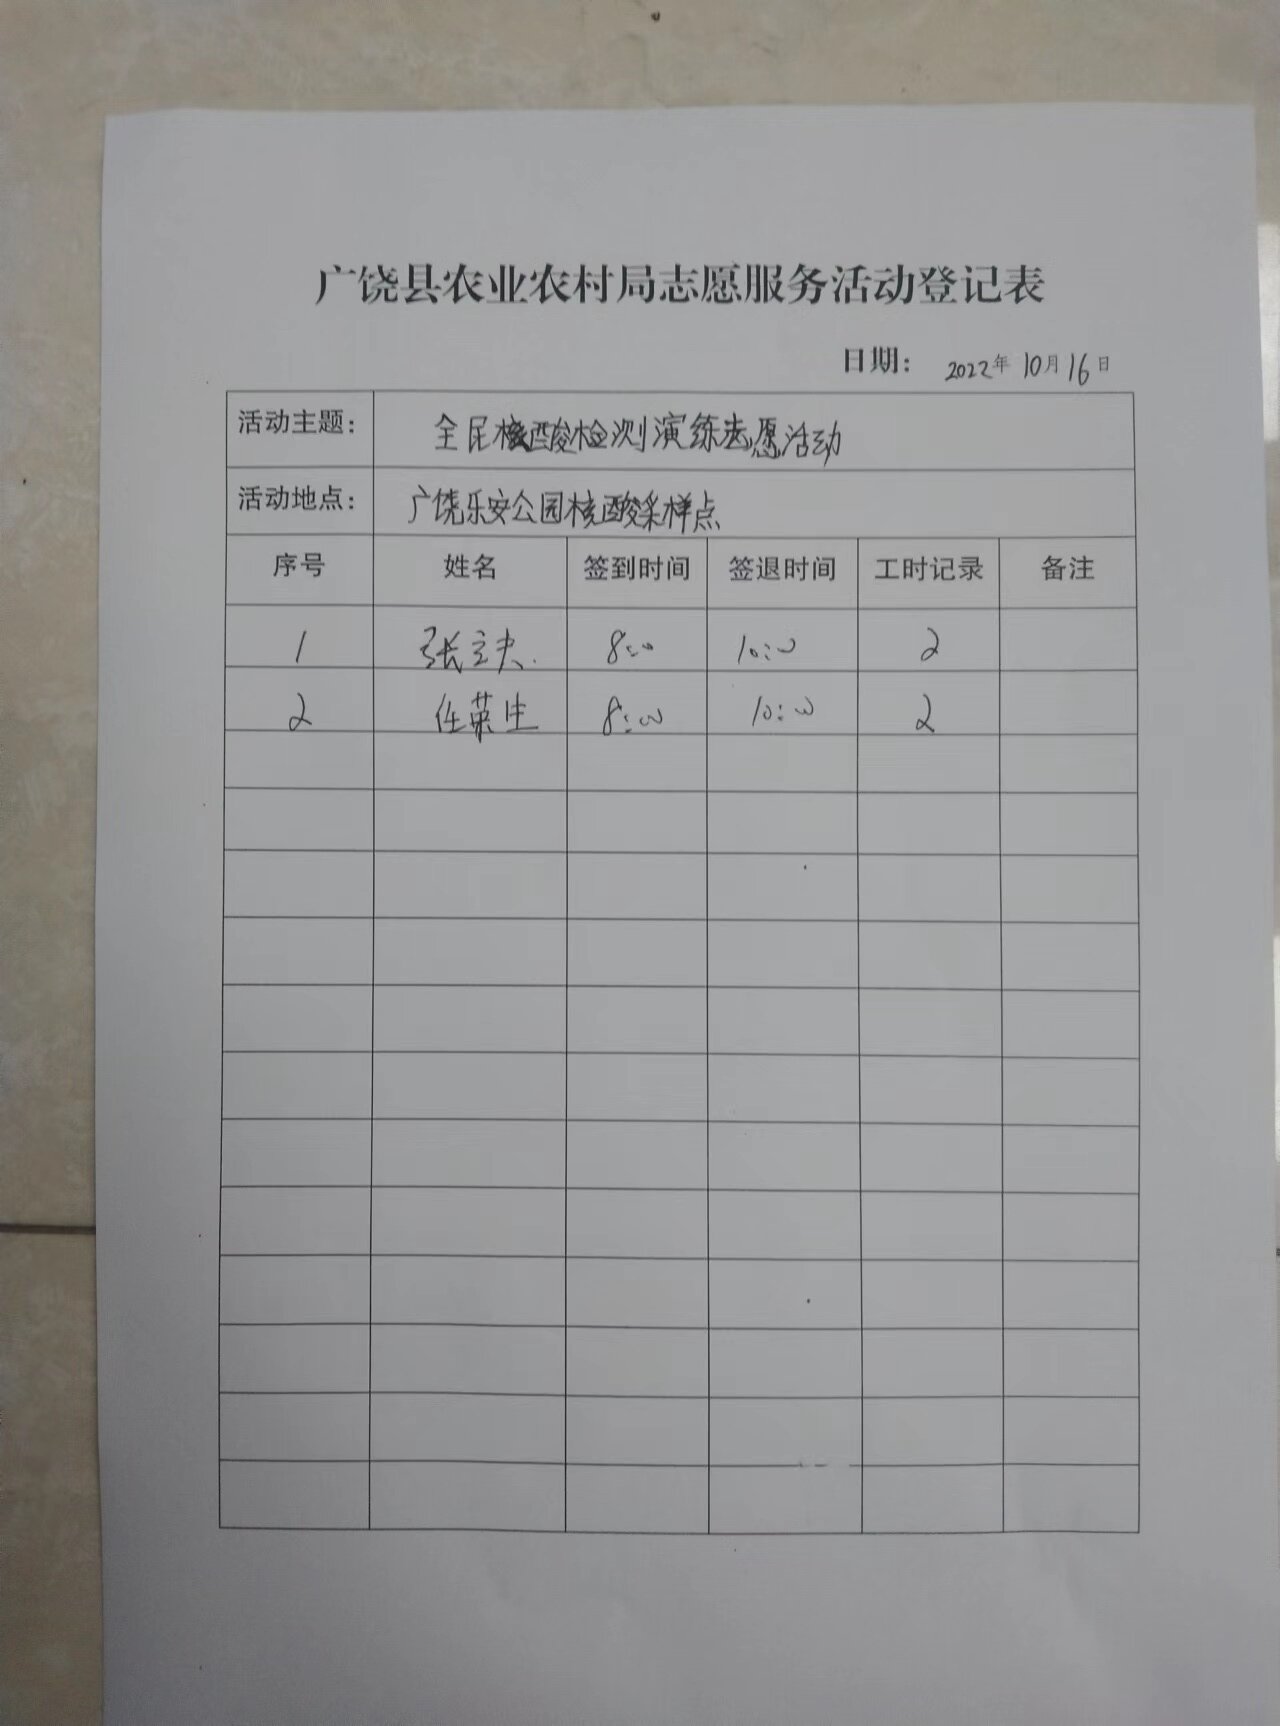 广饶县农业农村局志愿服务活动登记表
日期： 2022年10月16日
活动主题： 全民核酸检测演练志愿活动
活动地点： 广饶乐安公园核酸采样点
序号 姓名 签到时间 签退时间 工时记录 备注
1 张立夫 8:00 10:00 2
2 任荣生 8:00 10:00 2